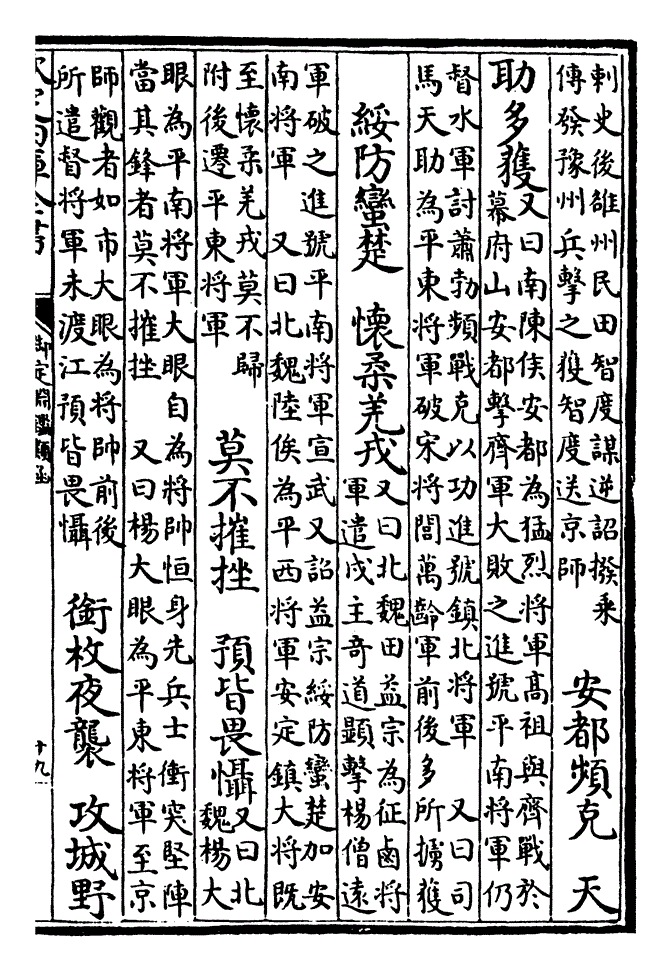 刺史後雒州民田智度謀逆詔撥乘
傳發豫州兵擊之獲智度送京師
安都頻克　天
助多獲
又曰南陳侯安都為猛烈將軍高祖與齊戰於
幕府山安都擊齊軍大敗之進號平南將軍仍
督水軍討蕭勃頻戰克以功進號鎮北將軍　又曰司
馬天助為平東將軍破宋將閻萬齡軍前後多所擄獲
綏防蠻楚　懷柔羌戎
又曰北魏田益宗為征鹵將
軍遣戍主奇道顯擊楊僧遠
軍破之進號平南將軍宣武又詔益宗綏防蠻楚加安
南將軍　又曰北魏陸俟為平西將軍安定鎮大將既
至懷柔羌戎莫不歸
附後遷平東將軍
莫不摧挫　預皆畏懾
又曰北
魏楊大
眼為平南將軍大眼自為將帥恒身先兵士衝突堅陣
當其鋒者莫不摧挫　又曰楊大眼為平東將軍至京
師觀者如市大眼為將帥前後
所遣督將軍未渡江預皆畏懾
銜枚夜襲　攻城野
欽定四庫全書
御定淵鑑類函
廿九